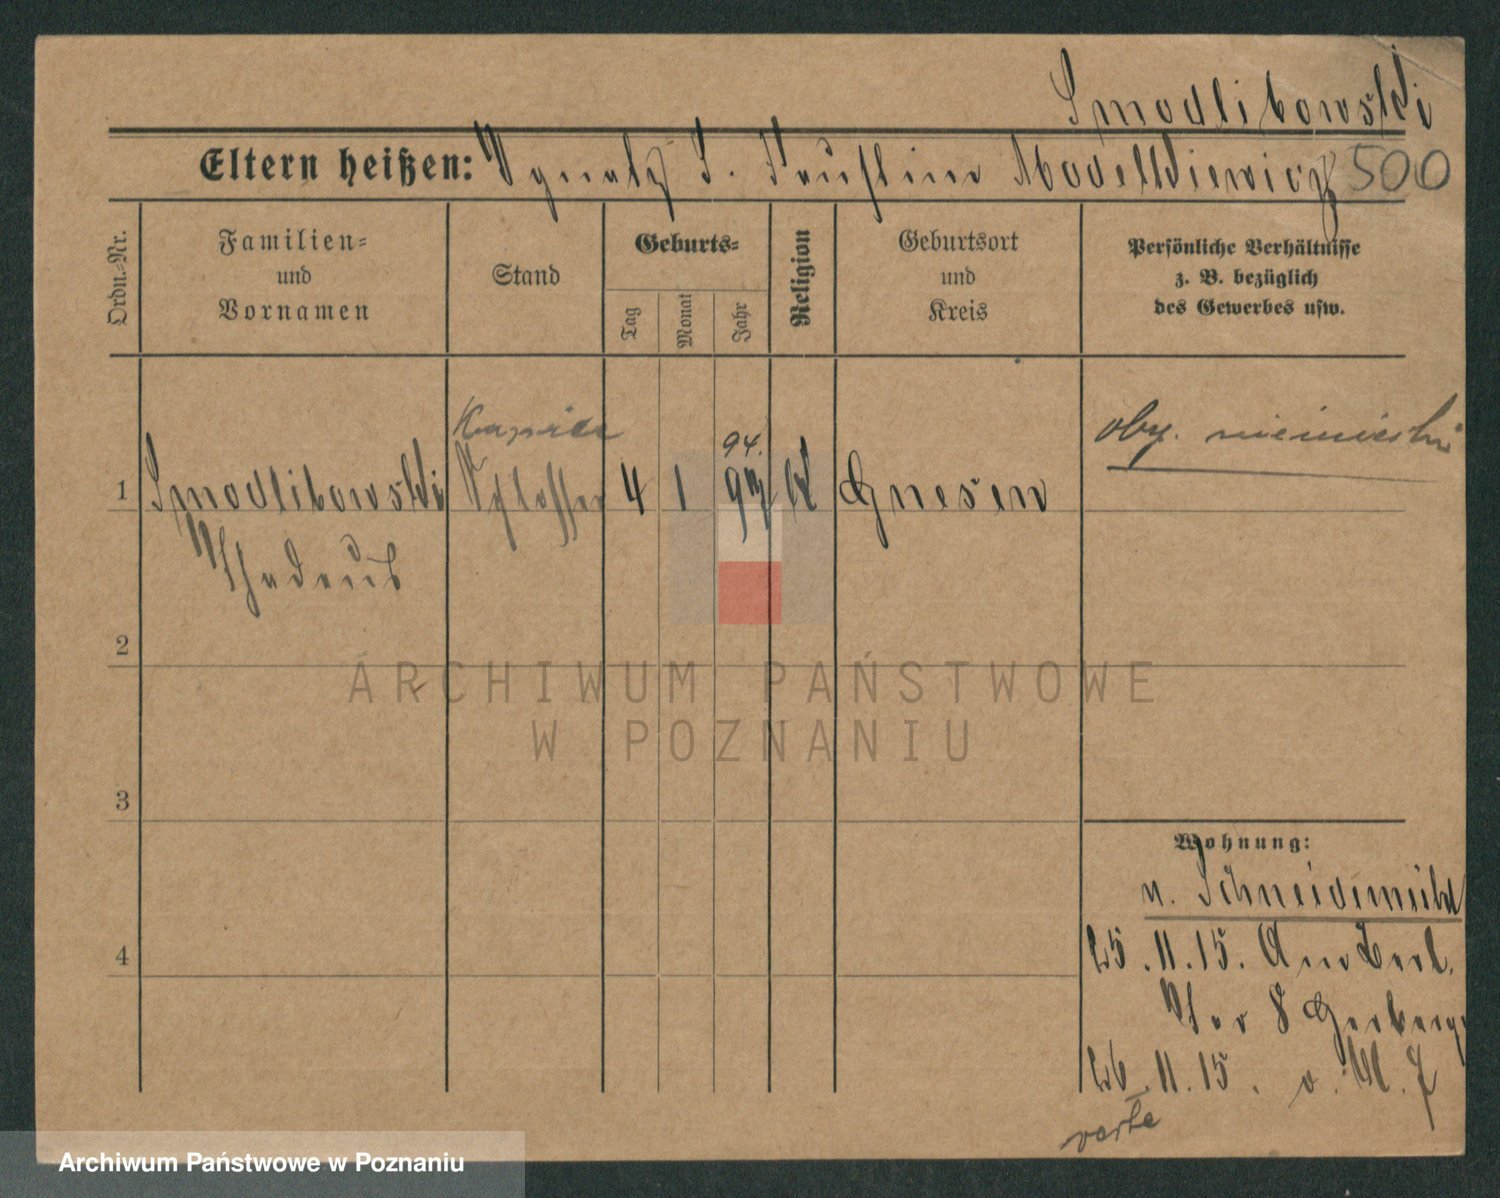 Smodlibowski
Eltern heißen: Ignatz S. Faustine Modelkiewicz 500
Ordn.-Nr.
Familien-
und
Vornamen
Stand
Geburts-
Tag
Monat
Jahr
Religion
Geburtsort
und
Kreis
Persönliche Verhältnisse
z. B. bezüglich
des Gewerbes usw.
1 Smodlibowski Schlosser 4 1 94. K Gnesen
Thadeus
2
3
4
Wohnung:
n. Schneidemühl
25. 11. 15.
8 Gerberg
26. 11. 15. v. U. Z
verte
ARCHIWUM PAŃSTWOWE
W POZNANIU
Archiwum Państwowe w Poznaniu